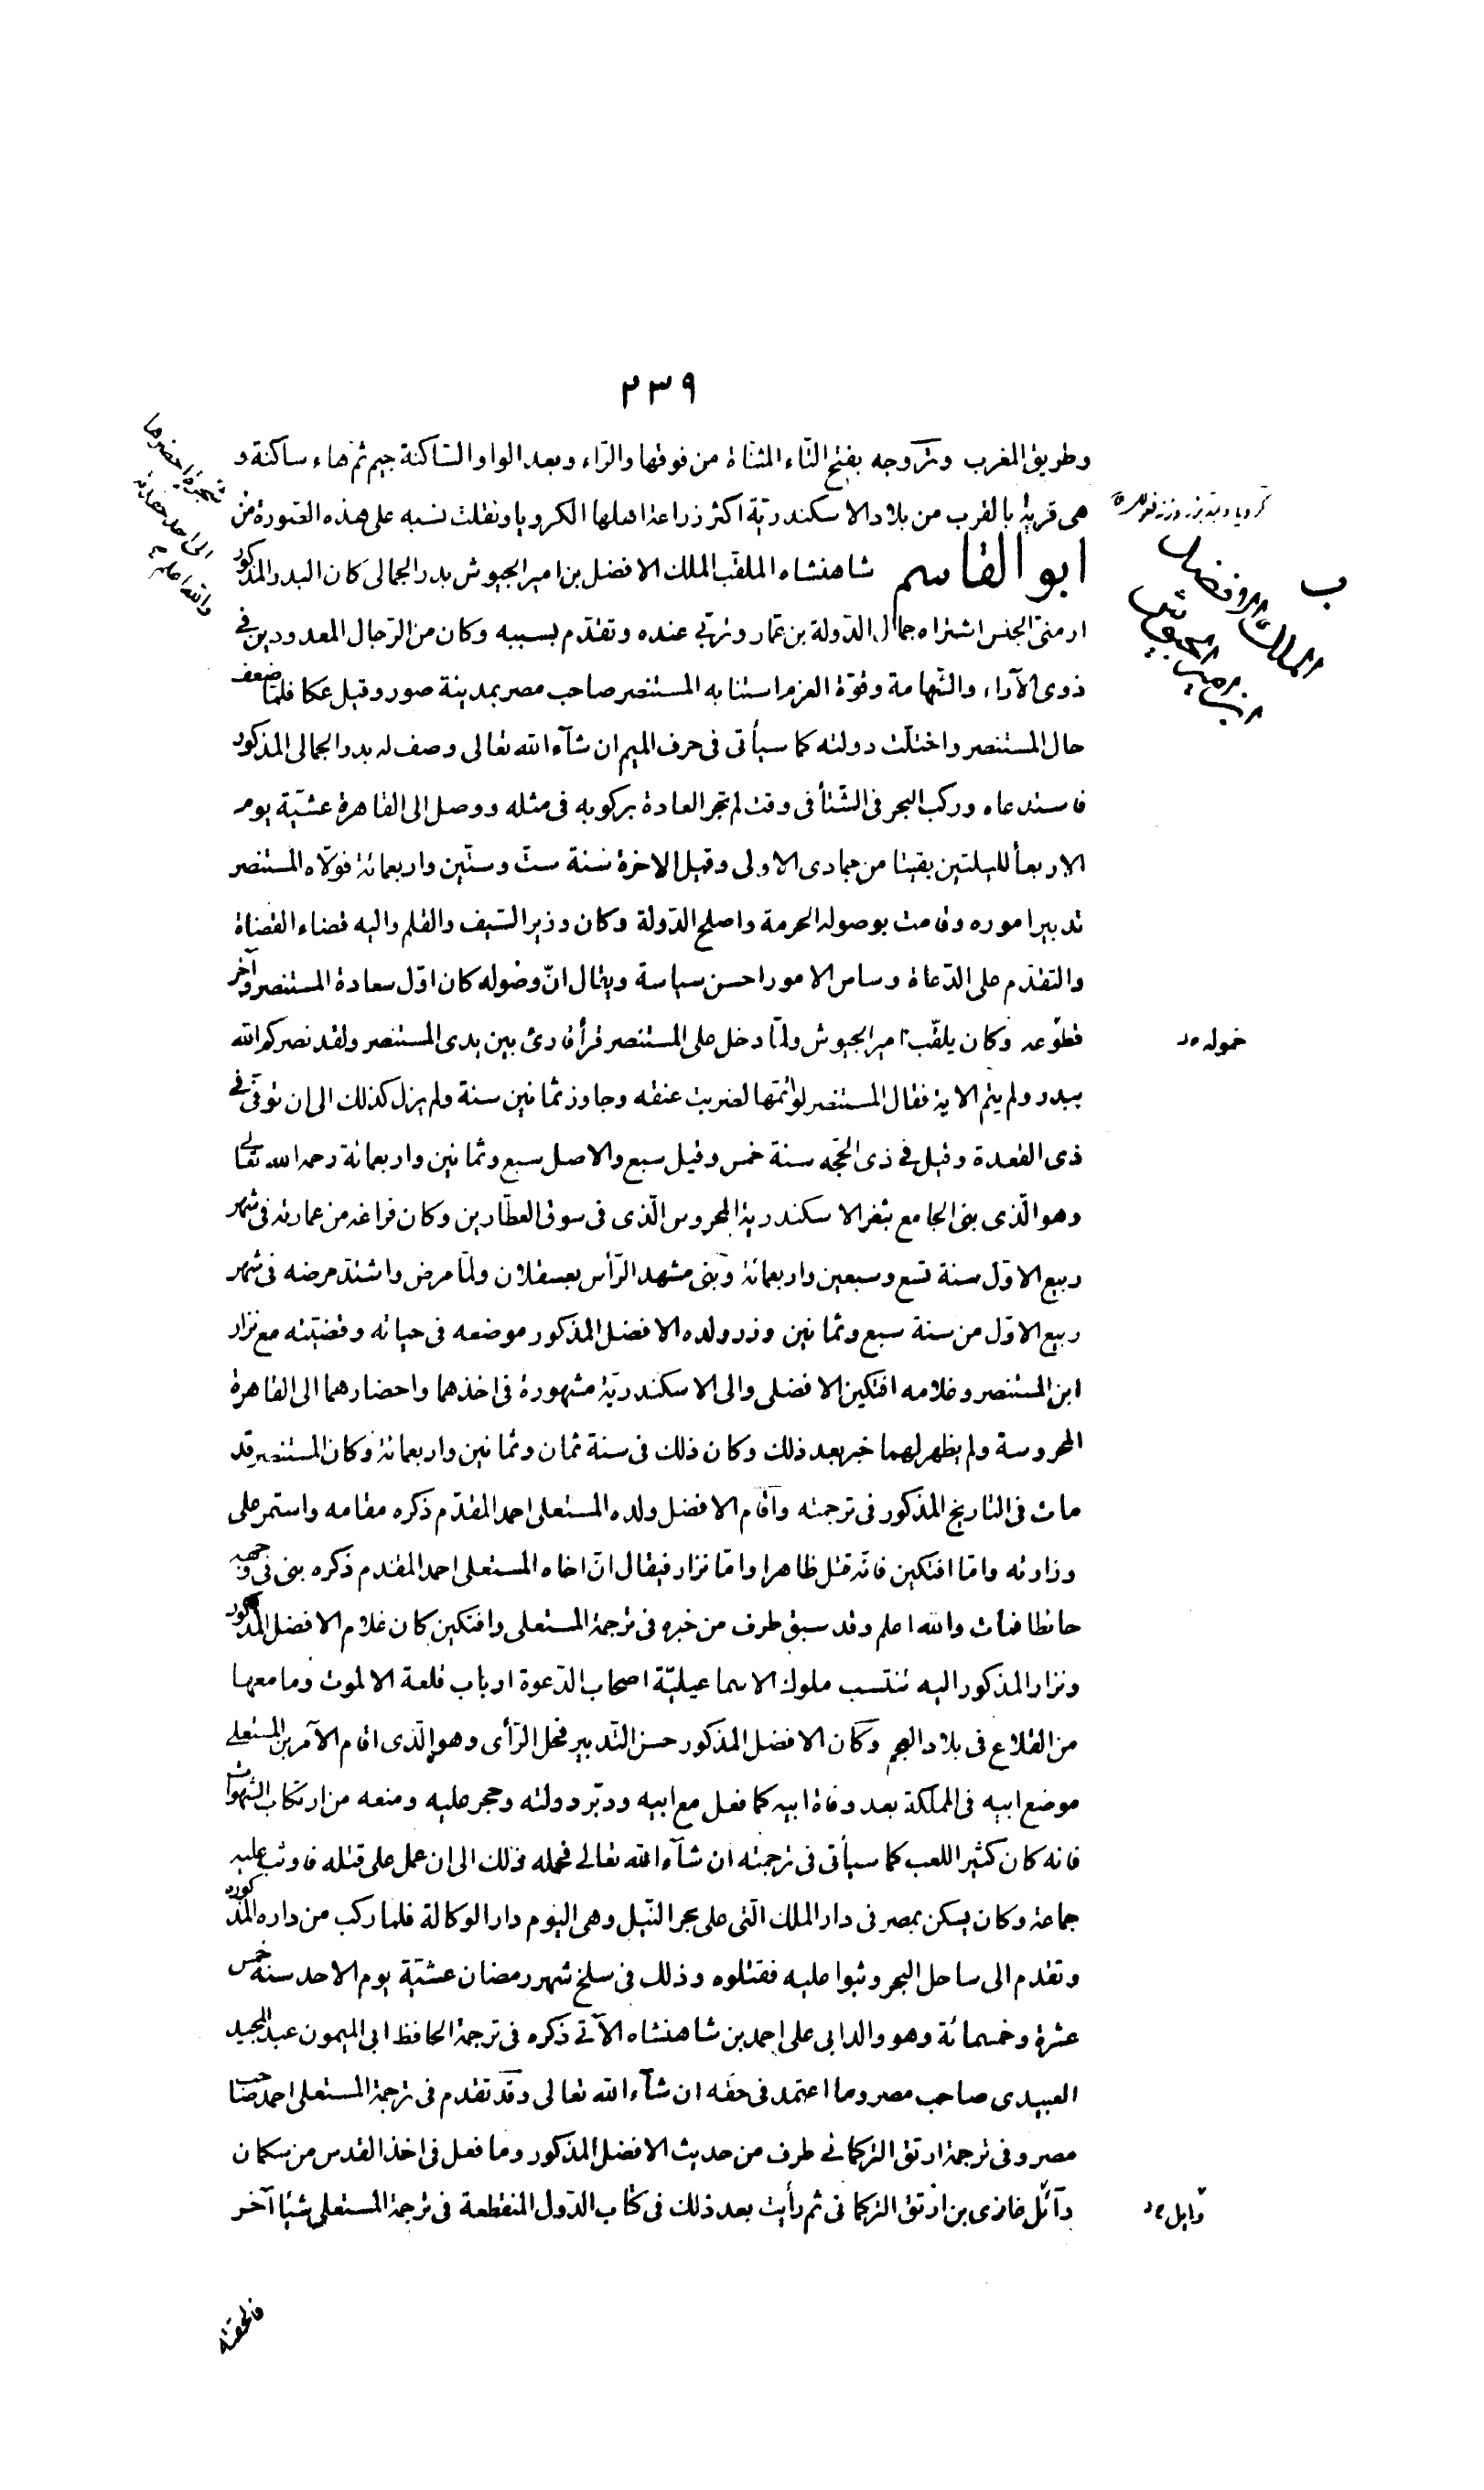 ٢٣٩
وطريق المغرب وتروجه بفتح التاء المثناة من فوقها والراء وبعد الواو الساكنة جيم ثم هاء ساكنة و
هى قرية بالقرب من بلاد الاسكندرية اكثر زراعة اهلها الكرويا ونقلت نسبه على هذه الصورة من
شجرة احضرها
الى احد حفدته
والله اعلم
ابو القاسم شاهنشاه الملقب الملك الافضل بن امير الجيوش بدر الجمالى كان البدر المذكور
ب
الملك الافضل
ابن امير الجيوش
ارمنى الجنس اشتراه جمال الدولة بن عمار وتربى عنده وتقدم بسببه وكان من الرجال المعدودين فى
ذوى الآراء والشهامة وقوة العزم استنابه المستنصر صاحب مصر بمدينة صور وقيل عكا فلما ضعف
حال المستنصر واختلت دولته كما سيأتى فى حرف الميم ان شآء الله تعالى وصف له بدر الجمالى المذكور
فاستدعاه وركب البحر فى الشتأ فى وقت لم تجر العادة بركوبه فى مثله ووصل الى القاهرة عشية يوم
الاربعأ لليلتين بقيتا من جمادى الاولى وقيل الاخرة سنة ست وستين واربعمائة فولاه المستنصر
تدبير اموره وقامت بوصوله الحرمة واصلح الدولة وكان وزير السيف والقلم واليه قضاء القضاة
والتقدم على الدعاة وساس الامور احسن سياسة ويقال ان وصوله كان اول سعادة المستنصر وآخر
قطوعه وكان يلقب امير الجيوش ولما دخل على المستنصر قرأ قارئ بين يدى المستنصر ولقد نصركم الله
خموله
ببدر ولم يتم الاية فقال المستنصر لو اتمها لضربت عنقه وجاوز ثمانين سنة ولم يزل كذلك الى ان توفى فى
ذى القعدة وقيل فى ذى الحجه سنة خمس وقيل سبع والاصل سبع وثمانين واربعمائة رحمه الله تعالى
وهو الذى بنى الجامع بثغر الاسكندرية المحروس الذى فى سوق العطارين وكان فراغه من عمارته فى شهر
ربيع الاول سنة تسع وسبعين واربعمائة وبنى مشهد الرأس بعسقلان ولما مرض واشتد مرضه فى شهر
ربيع الاول من سنة سبع وثمانين وزر ولده الافضل المذكور موضعه فى حياته وقضيته مع نزار
ابن المستنصر وغلامه افتكين الافضلى والى الاسكندرية مشهورة فى اخذهما واحضارهما الى القاهرة
المحروسة ولم يظهر لهما خبر بعد ذلك وكان ذلك فى سنة ثمان وثمانين واربعمائة وكان المستنصر قد
مات فى التاريخ المذكور فى ترجمته واقام الافضل ولده المستعلى احمد المقدم ذكره مقامه واستمر على
وزارته واما افتكين فانه قتل ظاهرا واما نزار فيقال ان اخاه المستعلى احمد المقدم ذكره بنى فى وجهه
حائطا فمات والله اعلم وقد سبق طرف من خبره فى ترجمة المستعلى وافتكين كان غلام الافضل المذكور
ونزار المذكور اليه تنتسب ملوك الاسماعيلية اصحاب الدعوة ارباب قلعة الالموت وما معها
من القلاع فى بلاد العجم وكان الافضل المذكور حسن التدبير فحل الرأى وهو الذى اقام الآمر بن المستعلى
موضع ابيه فى المملكة بعد وفاة ابيه كما فعل مع ابيه ودبر دولته وحجر عليه ومنعه من ارتكاب الشهوات
فانه كان كثير اللعب كما سيأتى فى ترجمته ان شآء الله تعالى فحمله ذلك الى ان عمل على قتله فاوثب عليه
جماعة وكان يسكن بمصر فى دار الملك التى على بحر النيل وهى اليوم دار الوكالة فلما ركب من داره المذكورة
وتقدم الى ساحل البحر وثبوا عليه فقتلوه وذلك فى سلخ شهر رمضان عشية يوم الاحد سنة خمس
عشرة وخمسمائة وهو والد ابى على احمد بن شاهنشاه الآتى ذكره فى ترجمة الحافظ ابى الميمون عبد المجيد
العبيدى صاحب مصر وما اعتمد فى حقه ان شآء الله تعالى وقد تقدم فى ترجمة المستعلى احمد صاحب
مصر وفى ترجمة ارتق التركمانى طرف من حديث الافضل المذكور وما فعل فى اخذ القدس من سكمان
وآئل غازى بن ارتق التركمانى ثم رأيت بعد ذلك فى كتاب الدول المنقطعة فى ترجمة المستعلى شيئا آخر
وايل
فالحقته